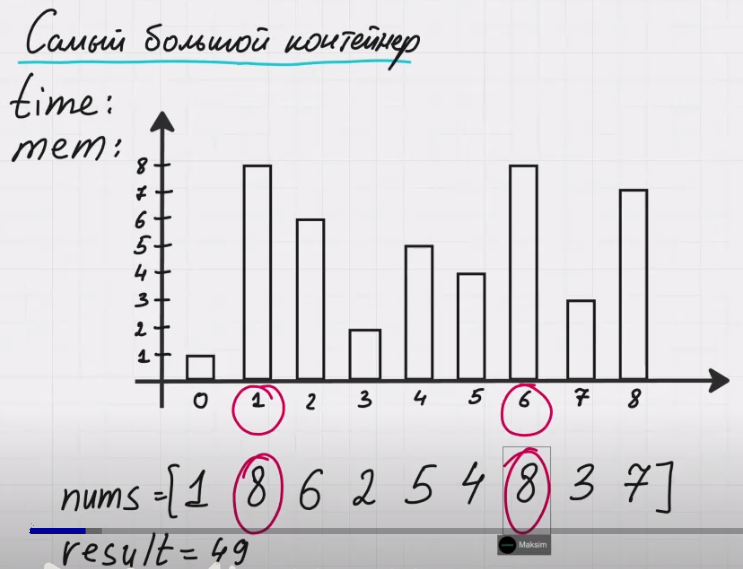 Самый большой контейнер
time:
mem:
8
7
6
5
4
3
2
1
0 1 2 3 4 5 6 7 8
nums = [1 8 6 2 5 4 8 3 7]
Maksim
result = 49